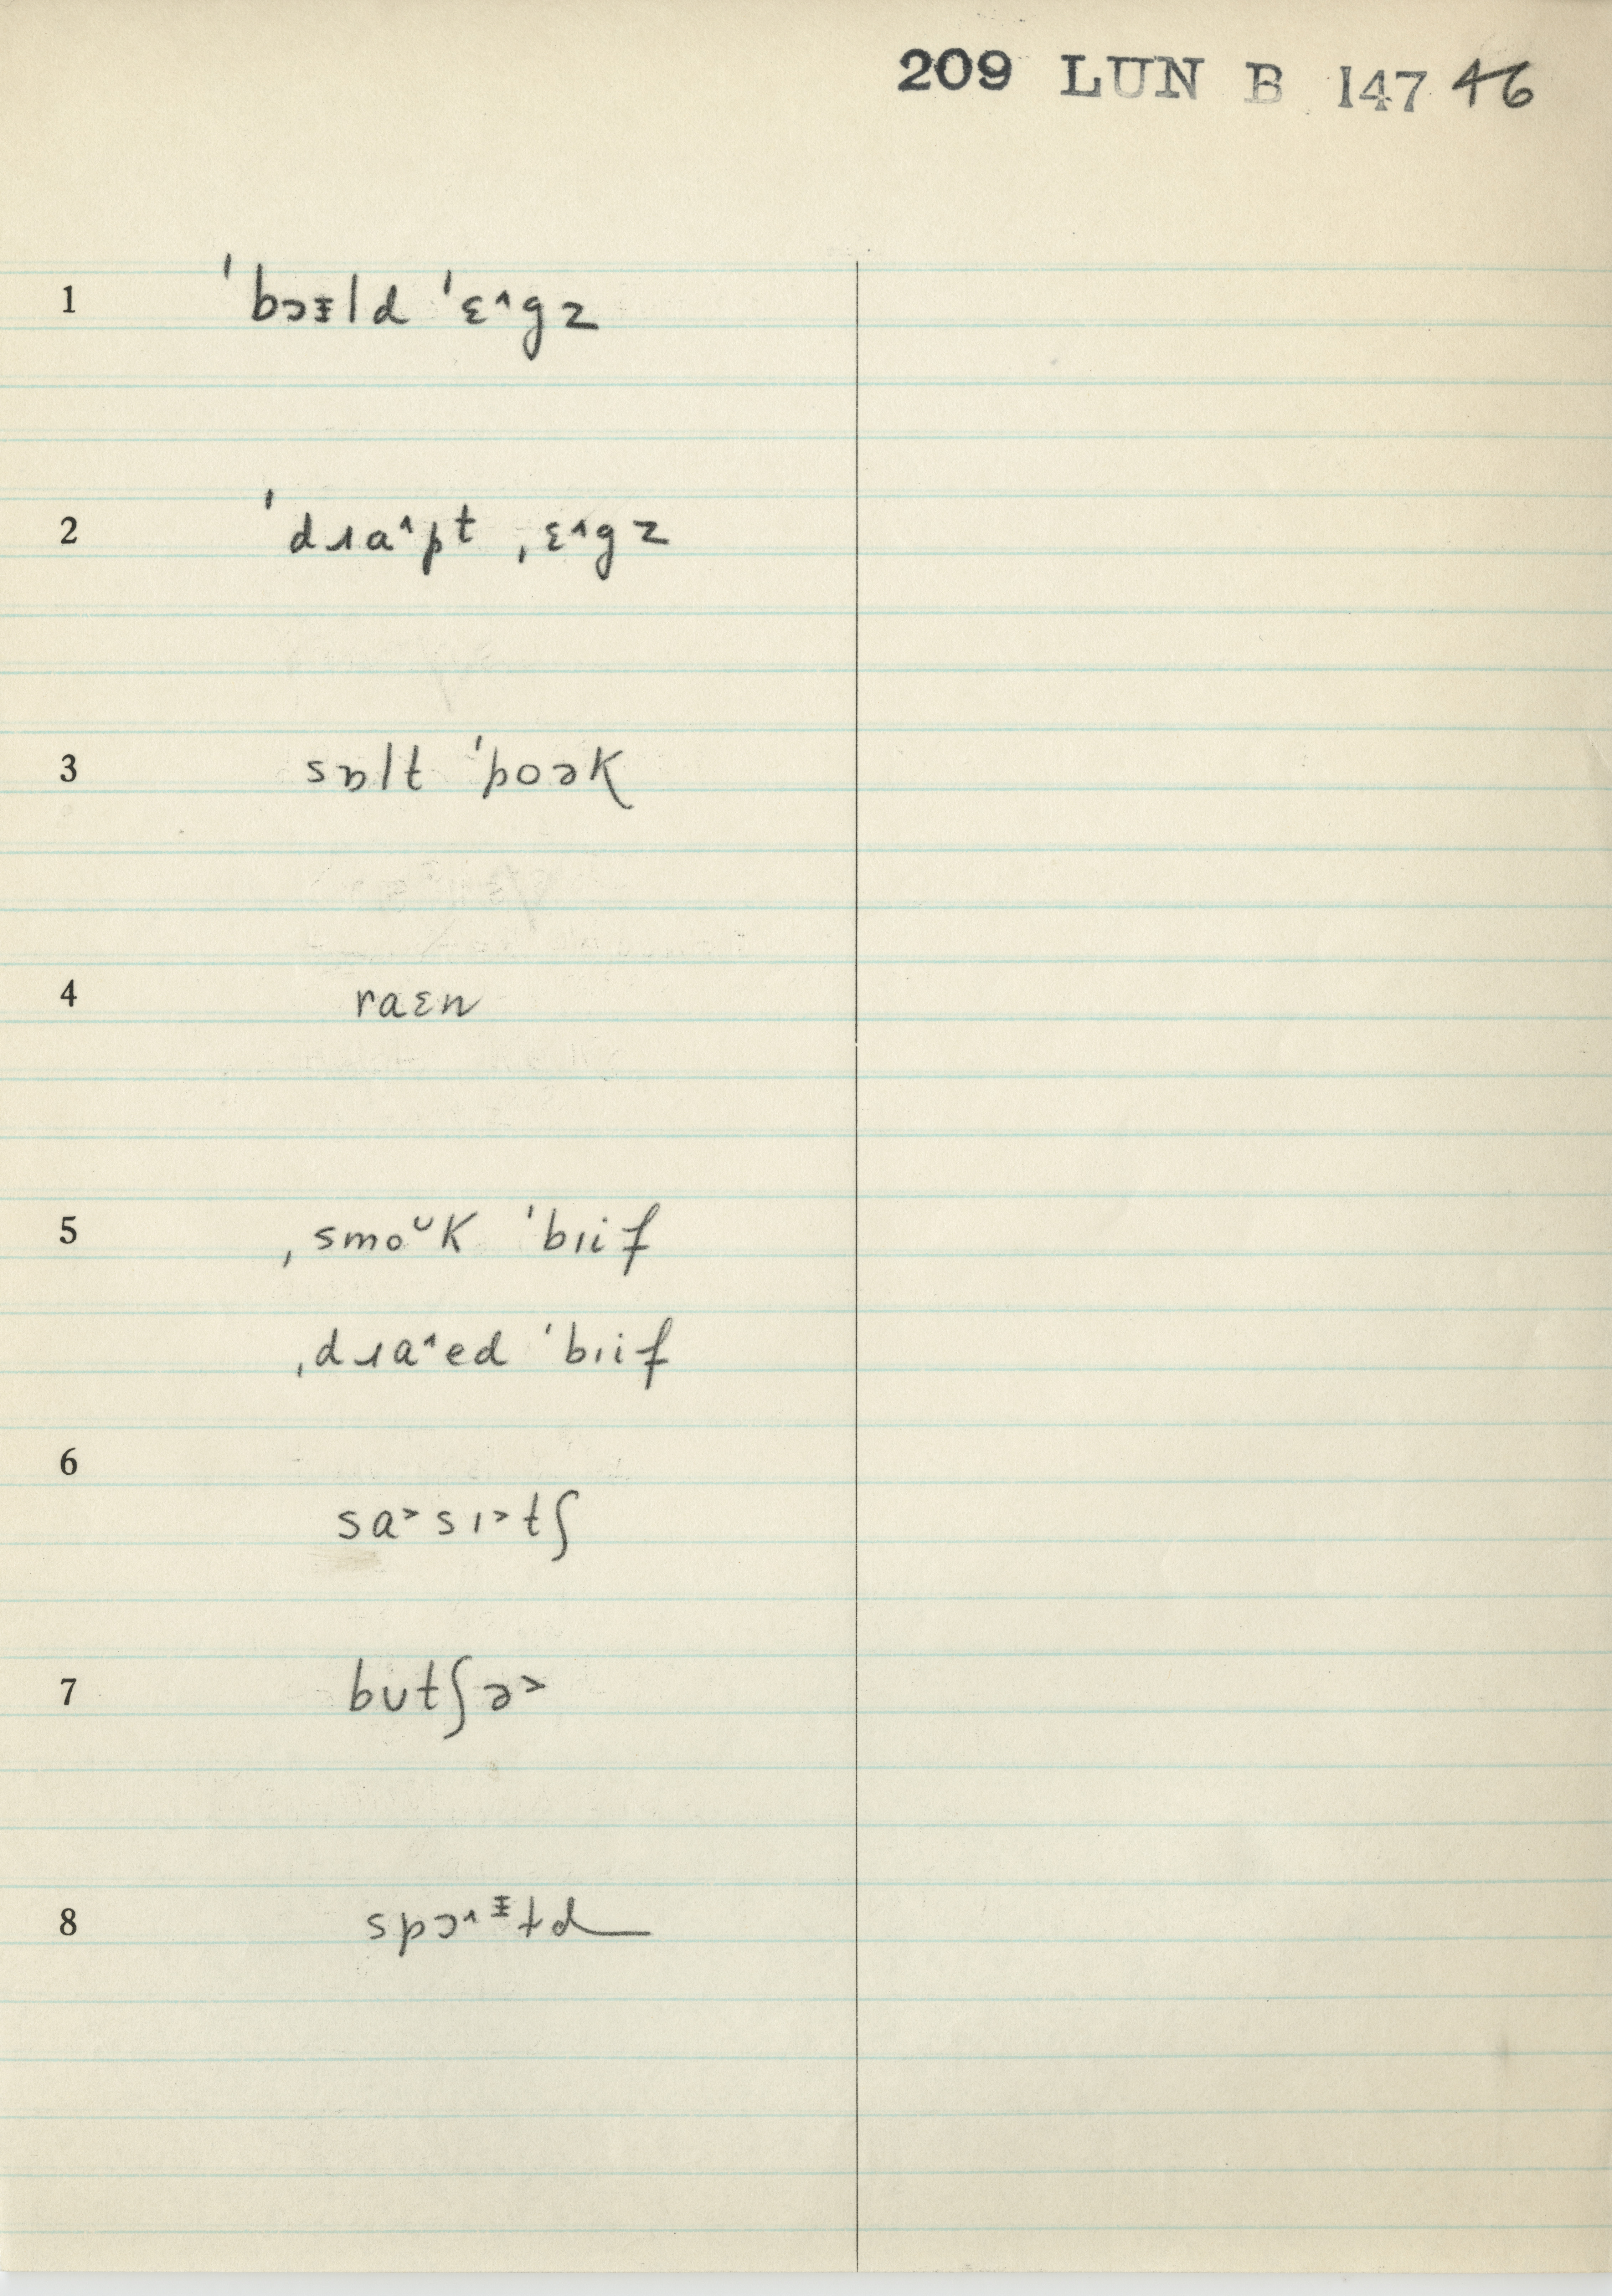 209 LUN B 147 46
1 ˈbɔᵻld ˈɛ˄gz
2 ˈdɹa˄pt ˌɛ˄gz
3 sɒlt ˈpoək
4 raɛn
5 ˌsmoᴜk ˈbiif
ˌdɹa˄ed ˈbiif
6
sa˃sɪ˃tʃ
7 butʃə˃
8 spɔ˄ᵻtd